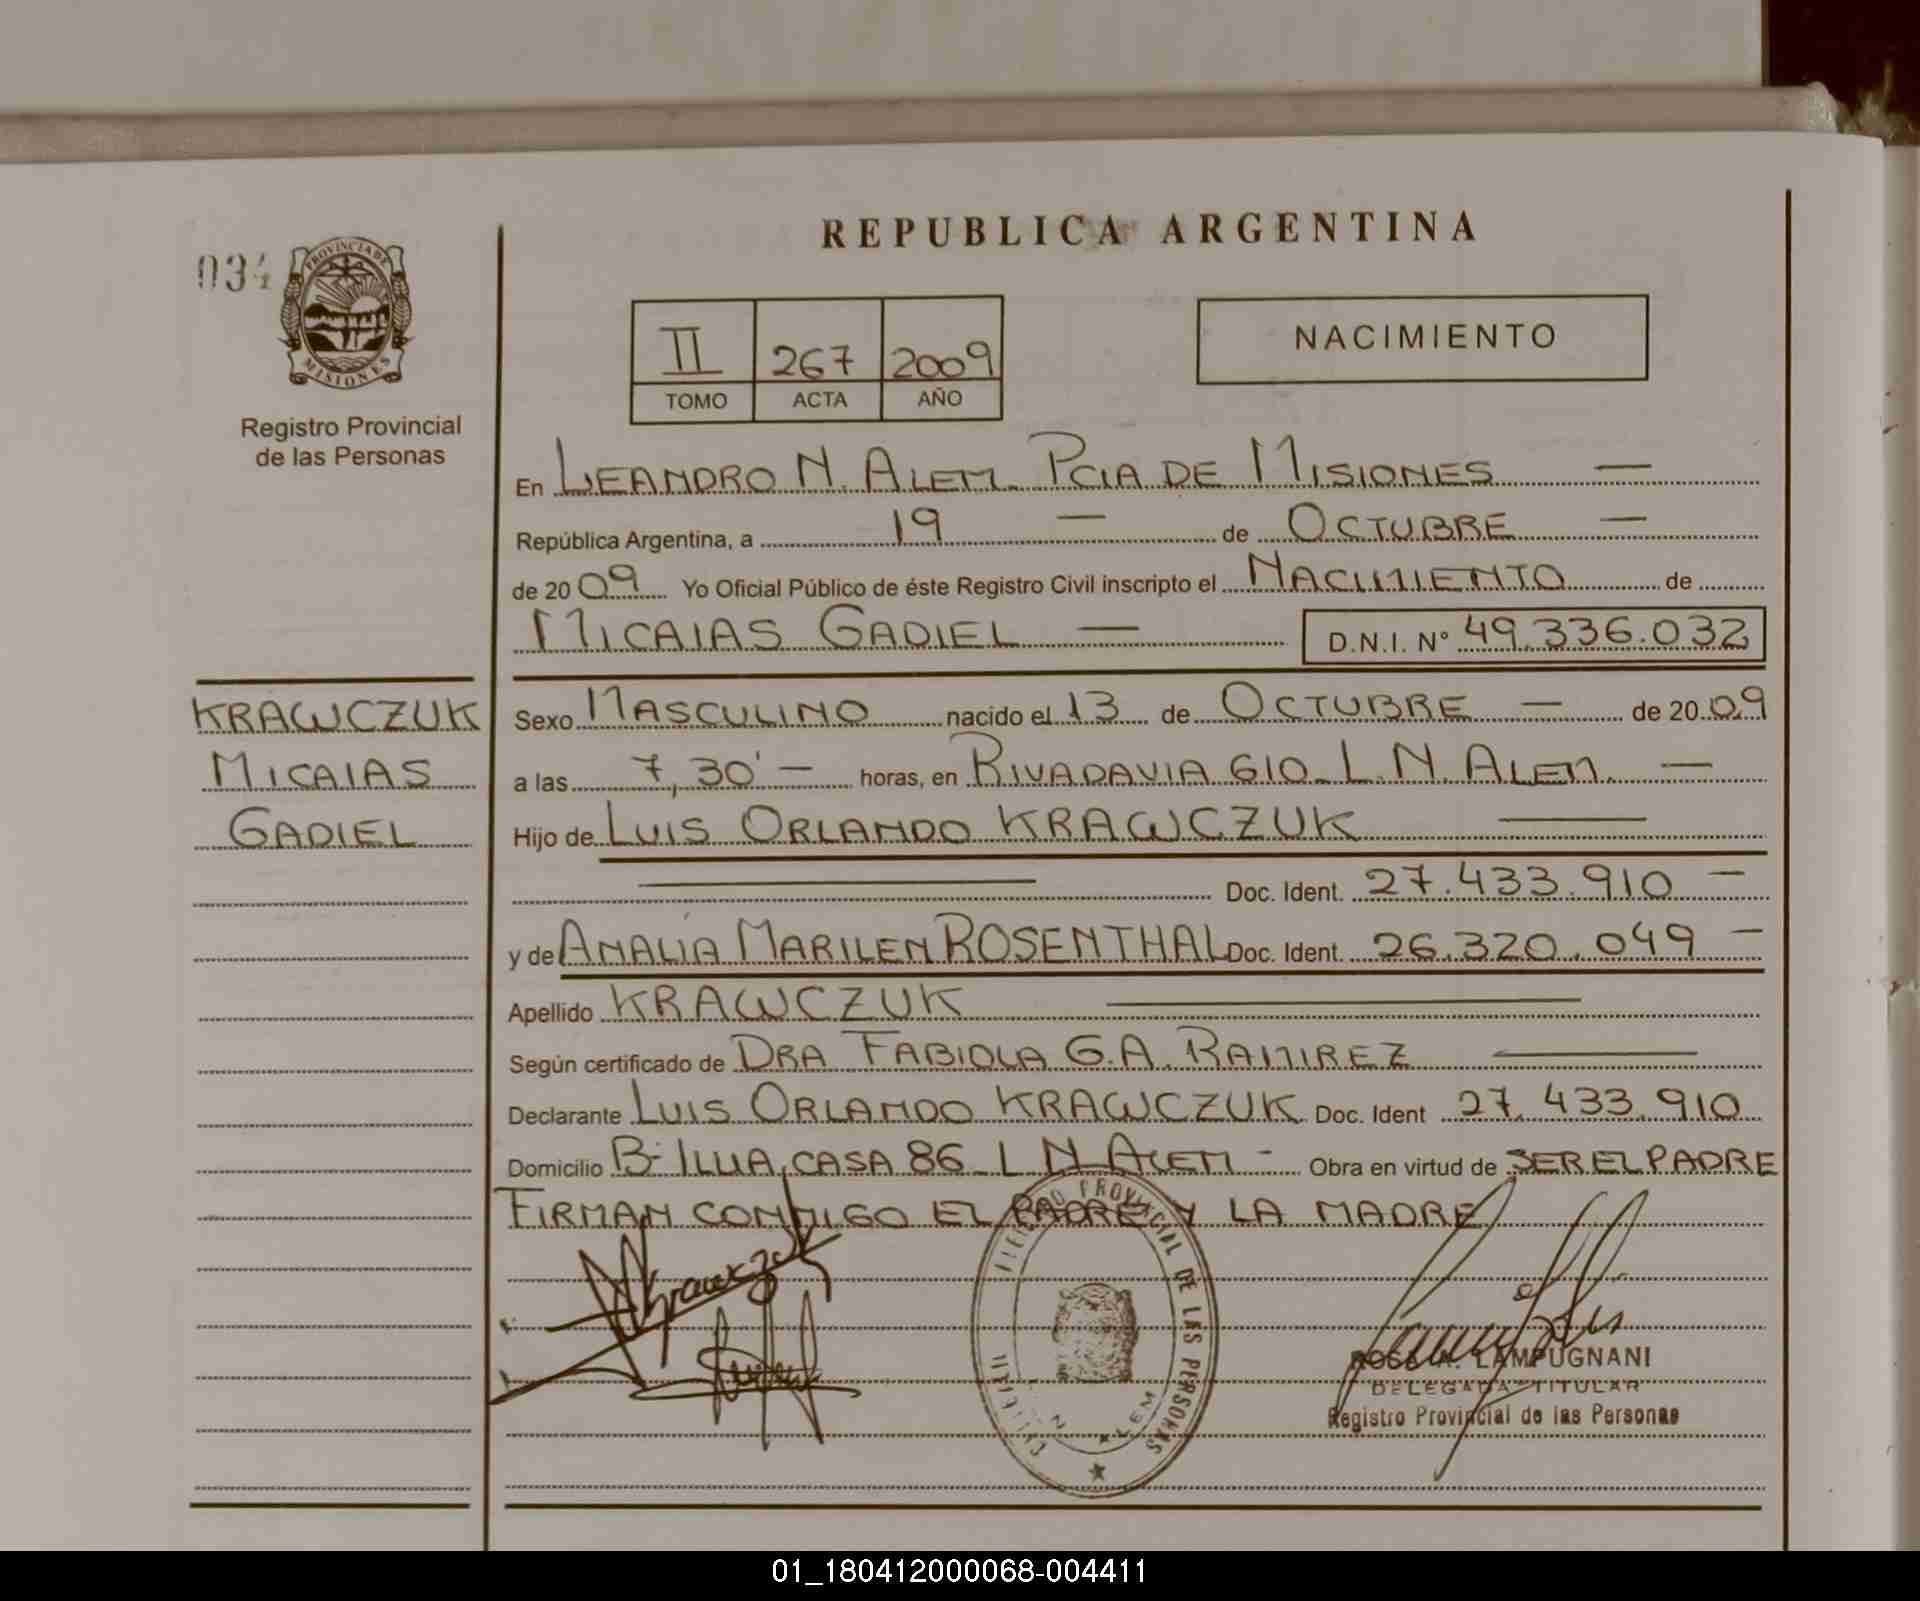 REPUBLICA ARGENTINA
034
PROVINCIA DE
MISIONES
Registro Provincial
de las Personas
II 267 2009
TOMO ACTA AÑO
NACIMIENTO
En LEANDRO N. ALEM. PCIA DE MISIONES —
República Argentina, a 19 — de OCTUBRE —
de 2009 Yo Oficial Público de éste Registro Civil inscripto el NACIMIENTO de
MICAIAS GADIEL — D.N.I. N° 49.336.032
KRAWCZUK
MICAIAS
GADIEL
Sexo MASCULINO nacido el 13 de OCTUBRE — de 2009
a las 7,30' — horas, en RIVADAVIA 610 - L. N. ALEM. —
Hijo de LUIS ORLANDO KRAWCZUK —
— Doc. Ident. 27.433.910 —
y de AMALIA MARILEN ROSENTHAL Doc. Ident. 26.320.049 —
Apellido KRAWCZUK —
Según certificado de DRA FABIOLA G.A. RAMIREZ —
Declarante LUIS ORLANDO KRAWCZUK Doc. Ident 27.433.910
Domicilio B- ILLIA, CASA 86 - L N ALEM - Obra en virtud de SER EL PADRE
FIRMAN CONMIGO EL PADRE Y LA MADRE
Krawczuk
PROVINCIAL DE LAS PERSONAS
N ALEM
ROSA A. LAMPUGNANI
DELEGADA TITULAR
Registro Provincial de las Personas
01_180412000068-004411